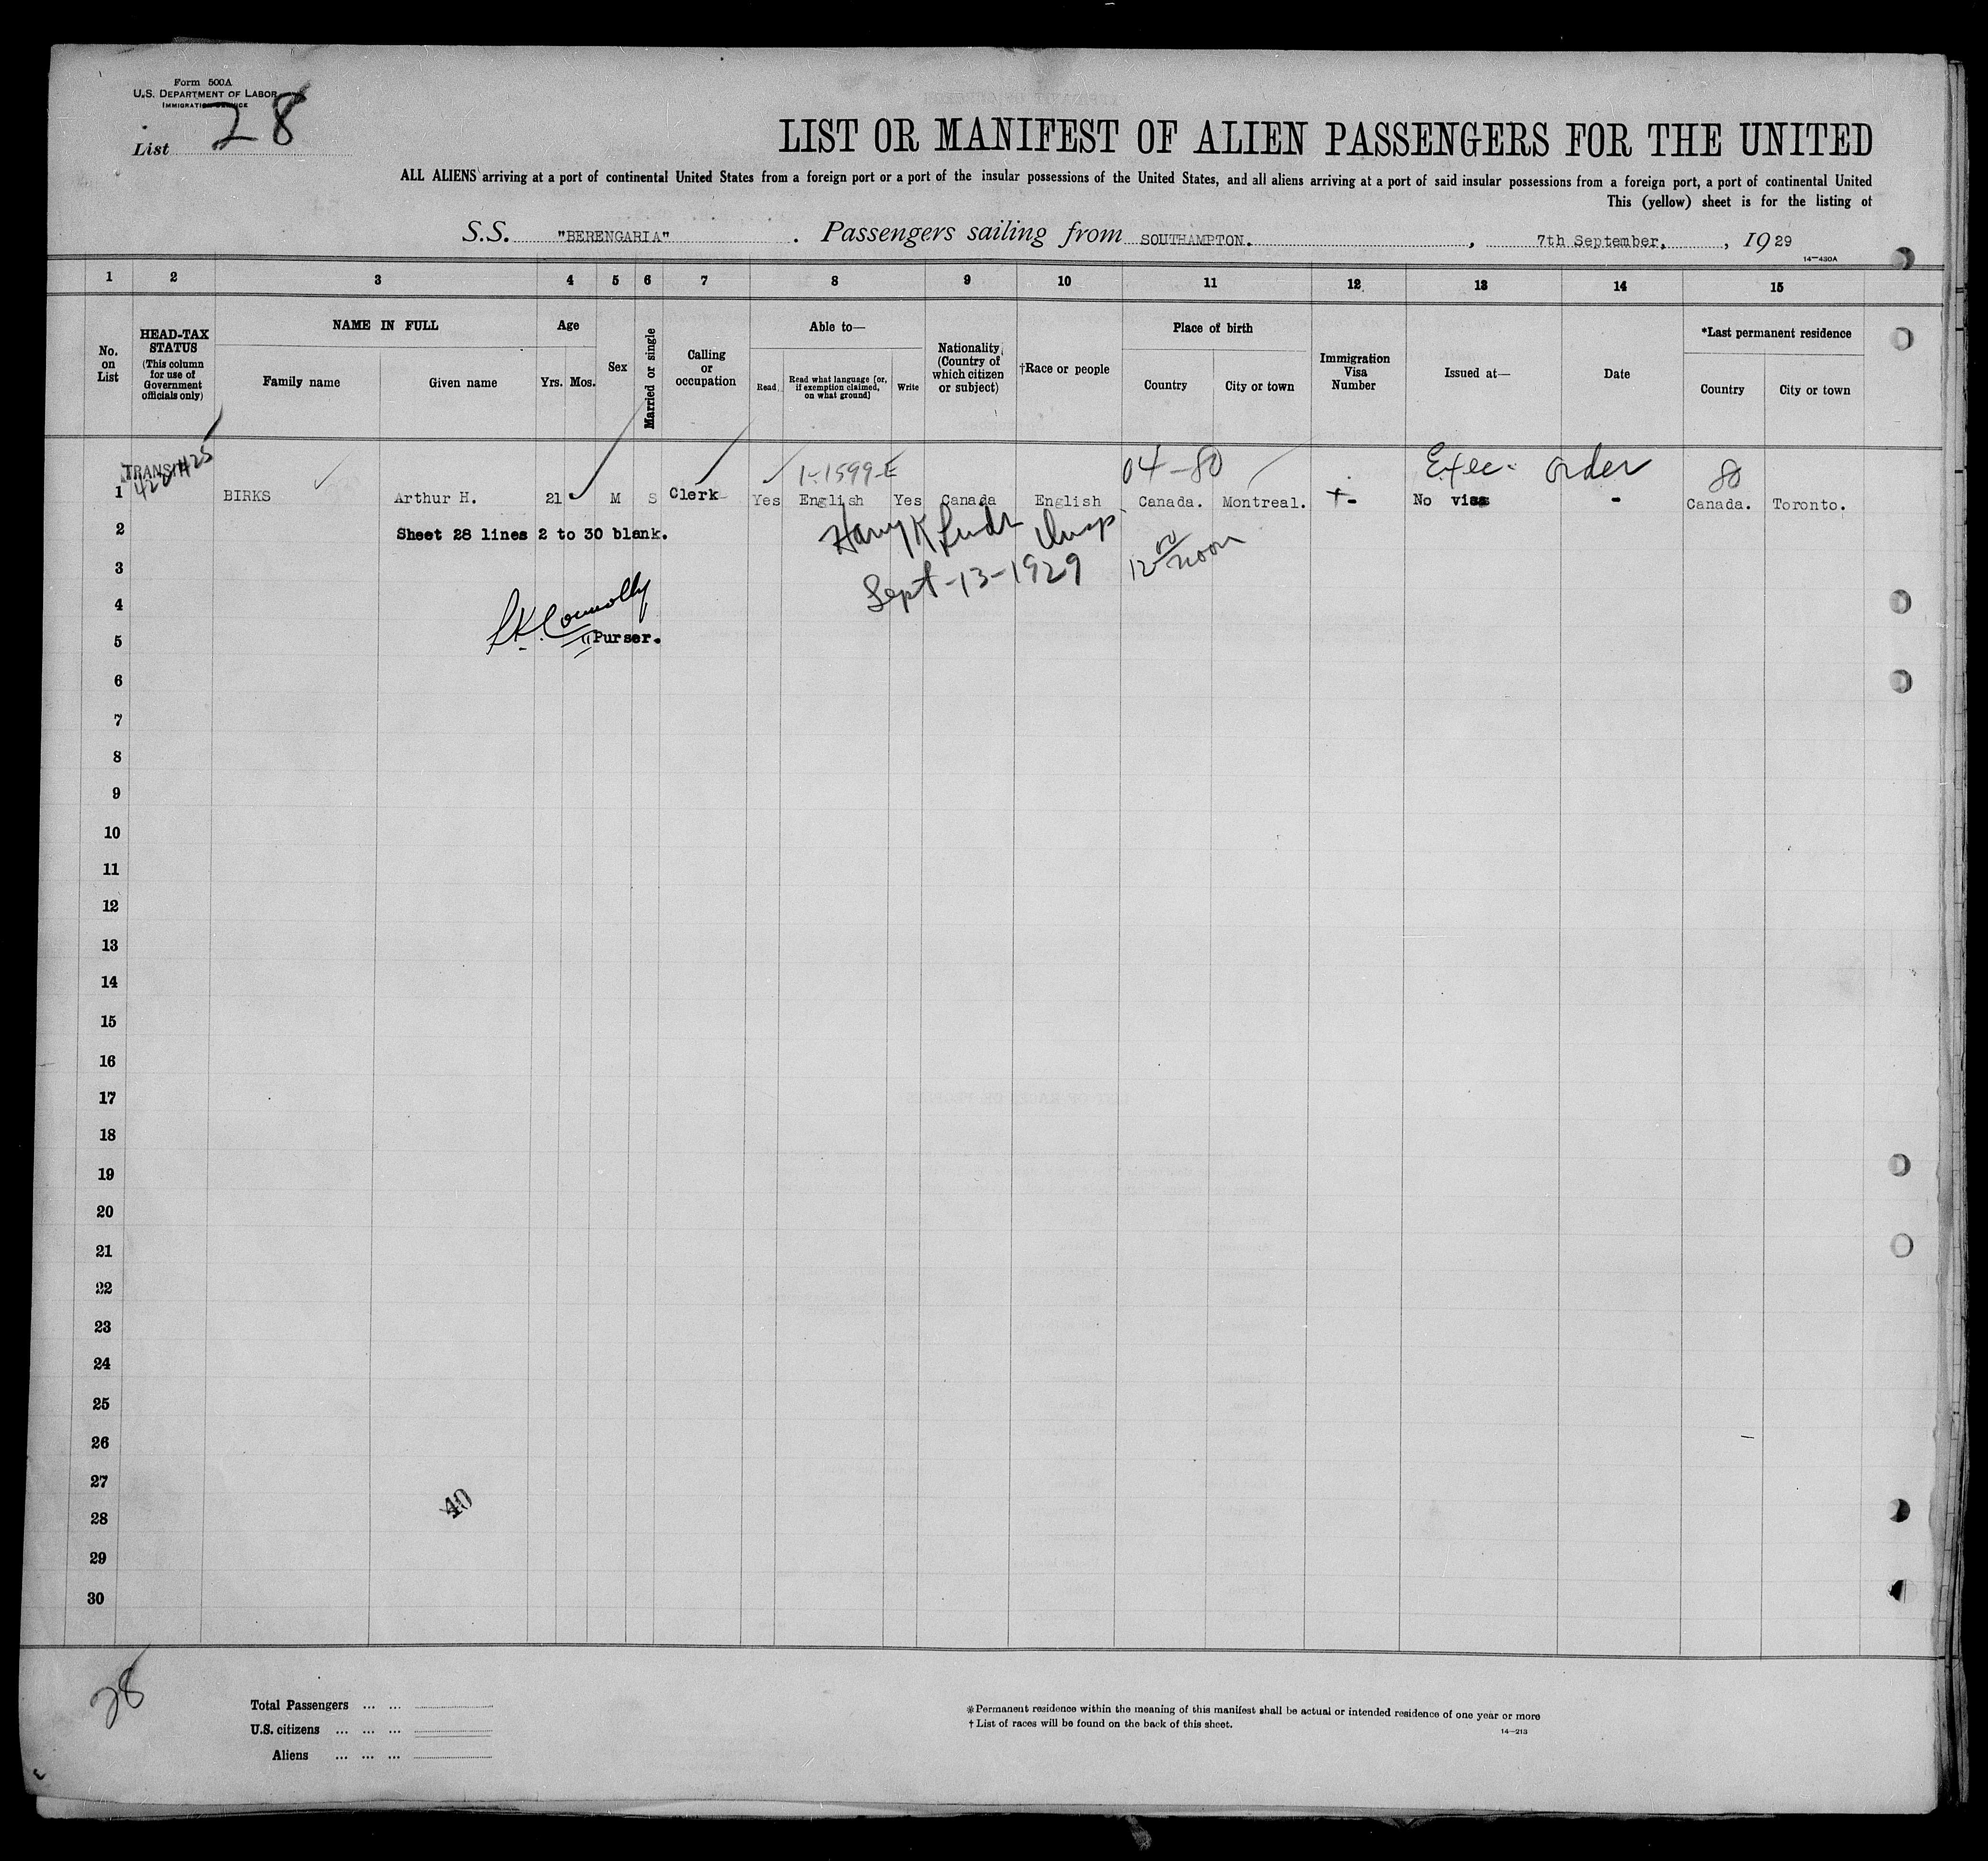 Form 500A
U.S. DEPARTMENT OF LABOR
IMMIGRATION SERVICE
List 28
LIST OR MANIFEST OF ALIEN PASSENGERS FOR THE UNITED
ALL ALIENS arriving at a port of continental United States from a foreign port or a port of the insular possessions of the United States, and all aliens arriving at a port of said insular possessions from a foreign port, a port of continental United
This (yellow) sheet is for the listing of
S.S. "BERENGARIA" . Passengers sailing from SOUTHAMPTON. , 7th September, , 1929
14—430A
1 2 3 4 5 6 7 8 9 10 11 12 13 14 15
No. on List
HEAD-TAX STATUS
(This column for use of Government officials only)
NAME IN FULL
Family name
Given name
Age
Yrs. Mos.
Sex
Married or single
Calling or occupation
Able to—
Read
Read what language [or, if exemption claimed, on what ground]
Write
Nationality (Country of which citizen or subject)
†Race or people
Place of birth
Country
City or town
Immigration Visa Number
Issued at—
Date
*Last permanent residence
Country
City or town
TRANSIT
1-1599-E 04-80 Exec. order 80
1 BIRKS Arthur H. 21 M S Clerk Yes English Yes Canada English Canada. Montreal. - No visa - Canada. Toronto.
2 Sheet 28 lines 2 to 30 blank.
Harry K Insp.
3 Sept-13-1929 12 00 noon
4 Connolly
5 Purser.
6
7
8
9
10
11
12
13
14
15
16
17
18
19
20
21
22
23
24
25
26
27
40
28
29
30
28
Total Passengers ... ...
U.S. citizens ... ... ...
Aliens ... ... ...
*Permanent residence within the meaning of this manifest shall be actual or intended residence of one year or more
† List of races will be found on the back of this sheet.
14—213